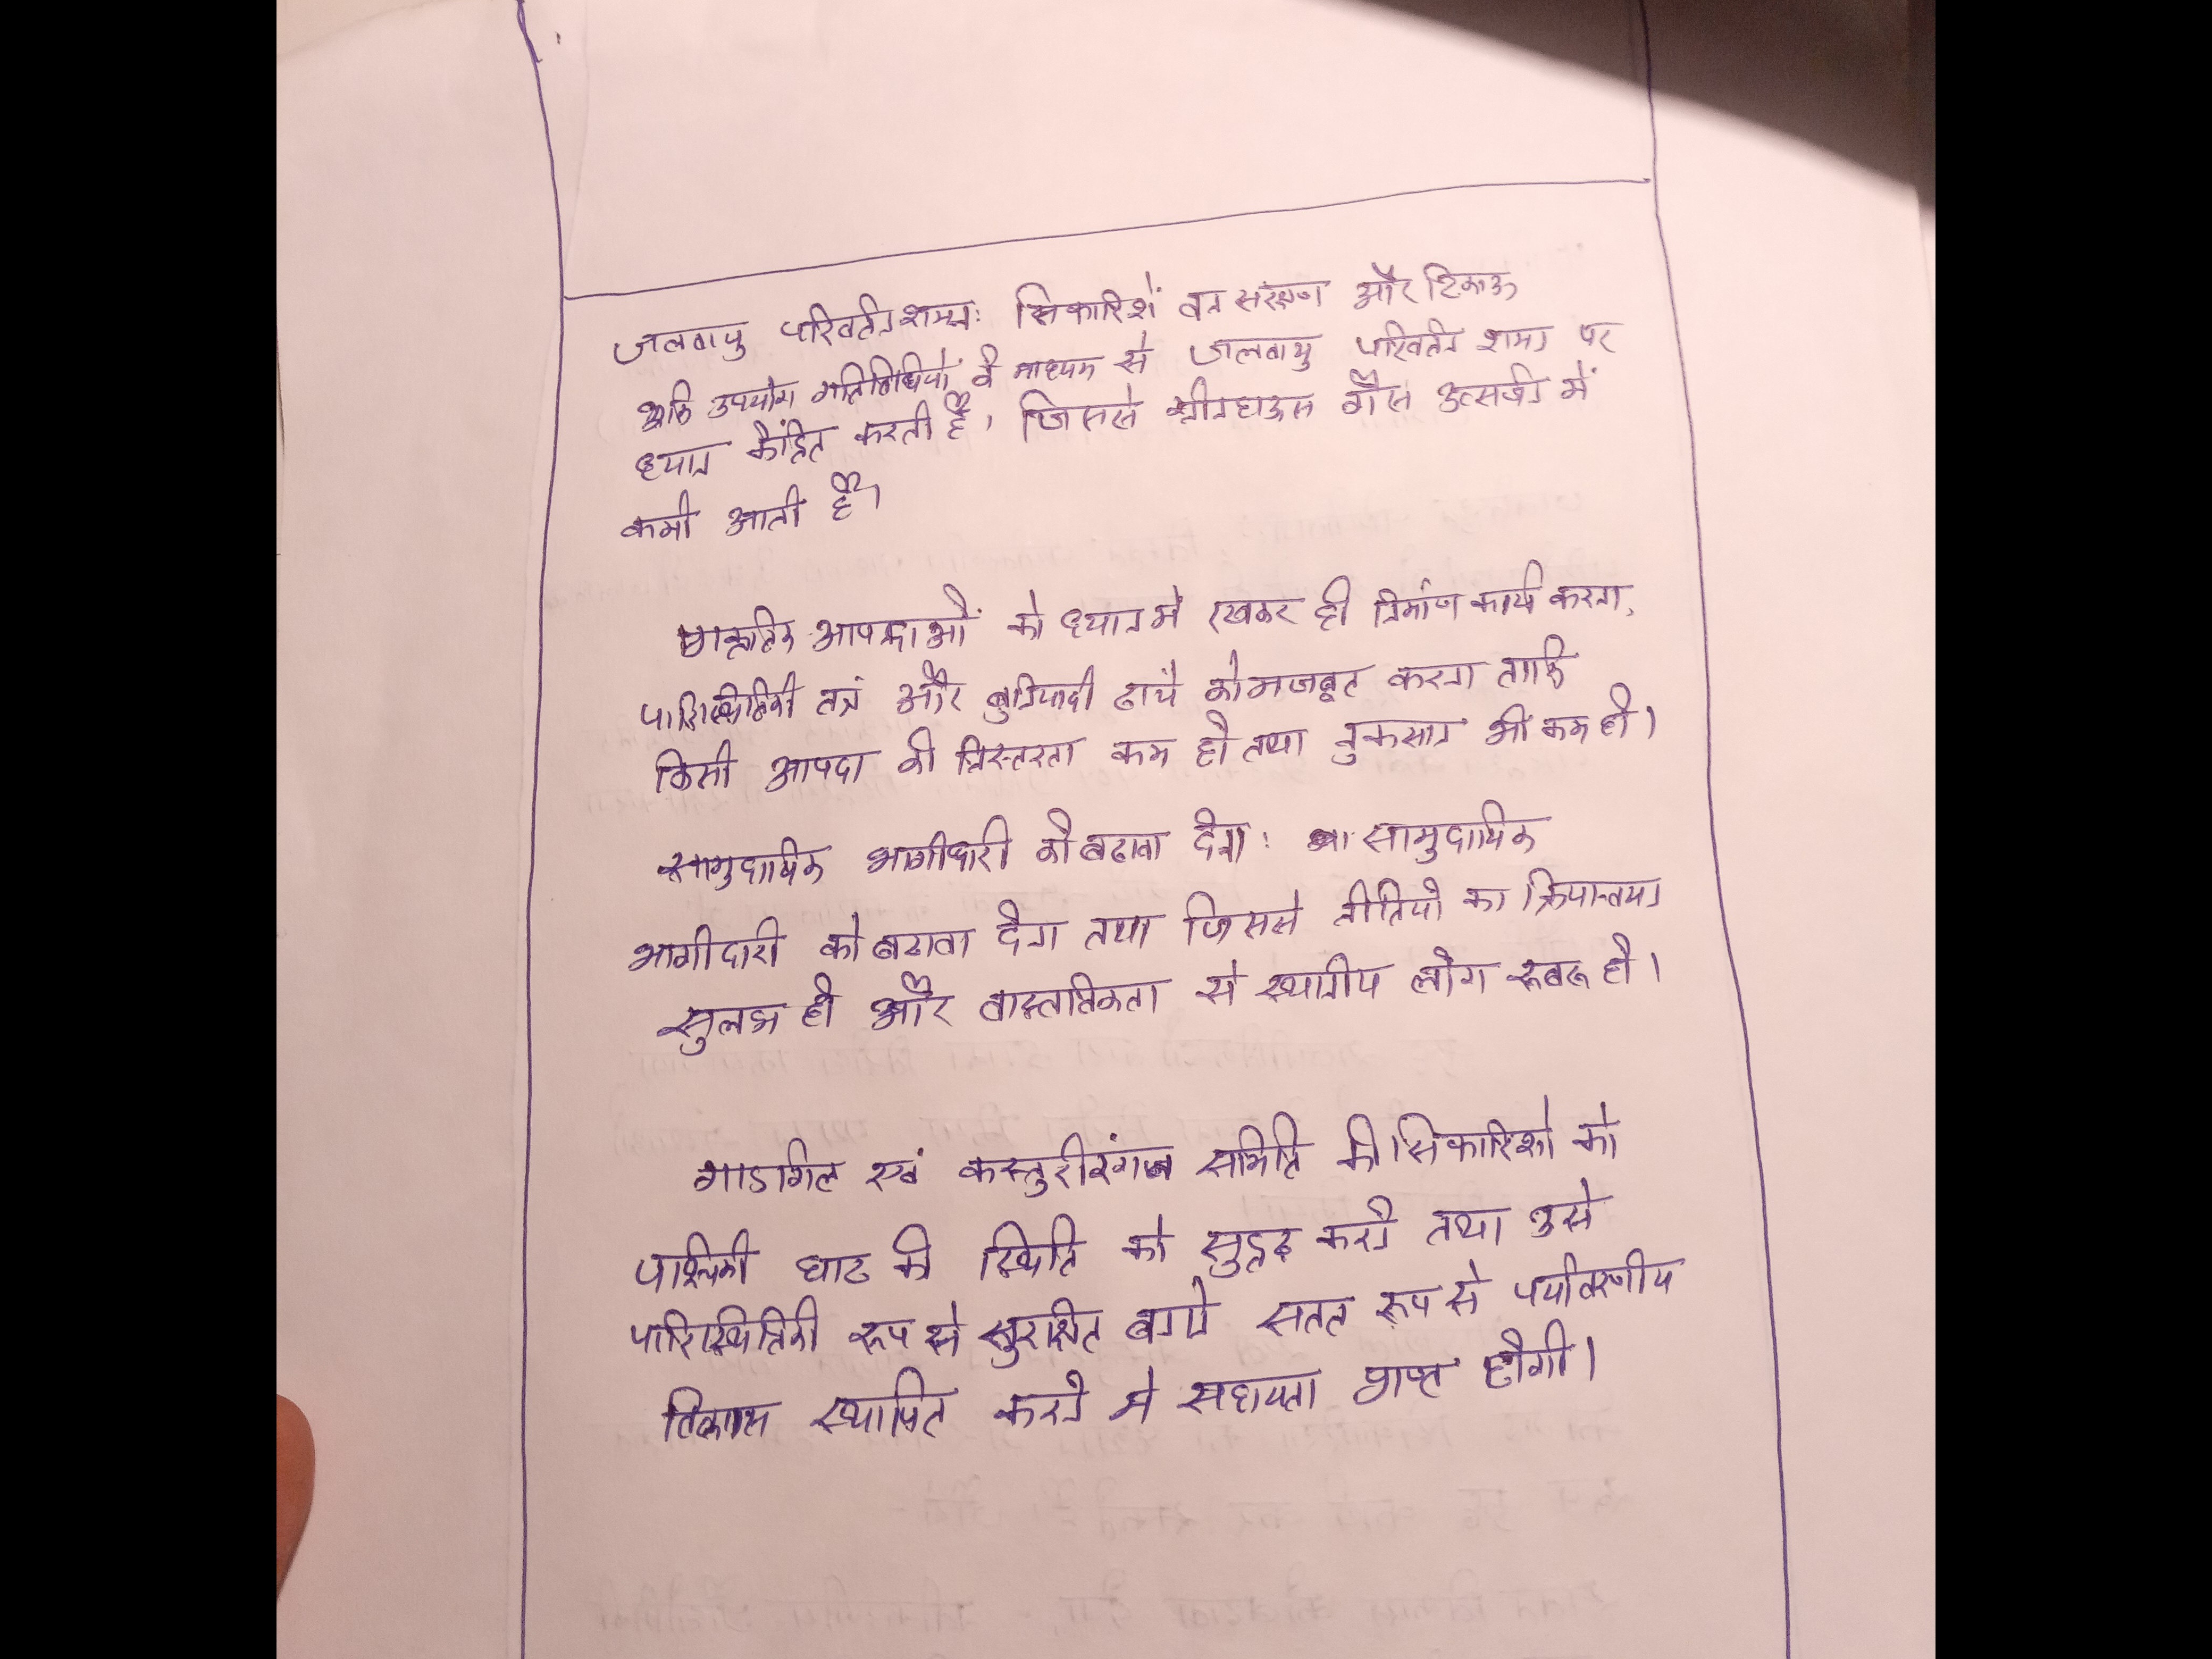 जलवायु परिवर्तन शमन: सिफारिशें वन संरक्षण और टिकाऊ
भूमि उपयोग गतिविधियों के माध्यम से जलवायु परिवर्तन शमन पर
ध्यान केंद्रित करती है, जिससे ग्रीनहाऊस गैस उत्सर्जन में
कमी आती है।
प्राकृतिक आपदाओं को ध्यान में रखकर ही निर्माण कार्य करना,
पारिस्थितिकी तत्रं और बुनियादी ढाचें को मजबूत करना ताकि
किसी आपदा की निरन्तरता कम हो तथा नुकसान भी कम हो।
सामुदायिक भागीदारी को बढावा देना: सामुदायिक
भागीदारी को बढावा देना तथा जिससे नीतियो का क्रियान्वयन
सुलभ हो और वास्तविकता से स्थानीय लोग रूबरू हो।
गाडगिल एवं कस्तुरीरंगन समिति की सिफारिशो को
पाश्चिमी घाट की स्थिति को सुदृढ़ करने तथा उसे
पारिस्थितिकी रूप से सुरक्षित बनाने सतत रूप से पर्यावरणीय
विकास स्थापित करने मे सहायता प्राप्त होगी।